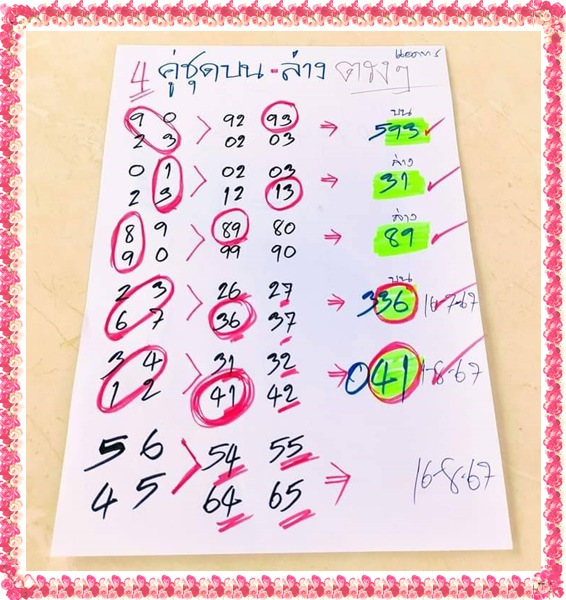 4 คู่ชุดบน-ล่าง ตรงๆ
บน
9 0 > 92 93 ⇒ 593
2 3 02 03
ล่าง
0 1 > 02 03 ⇒ 31
2 3 12 13
ล่าง
8 9 > 89 80 ⇒ 89
9 0 99 90
บน
2 3 > 26 27 ⇒ 336 16-7-67
6 7 36 37
3 4 > 31 32 ⇒ 041 1-8-67
1 2 41 42
5 6 > 54 55 ⇒ 16-8-67
4 5 64 65